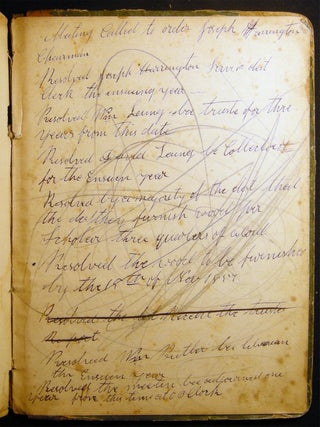 Meeting Called to order Joseph Harrington
Chairman
Resolved Joseph Harrington serve dist
clerk the ensuing year
Resolved Wm Laung trustee for thre
years from this date
Resolved Laung be Collector
for the Ensuen year
Resolved by majority of the dist that
the furnish wood per
Scholar three quarters of Cord
Resolved the wood to be furnished
by the 18th of Nov
Resolved the the trustee
Report
Resolved Wm Butler be librarian
the Ensuen year
Resolved the meetin be adjourned one
year from this time at Oclock